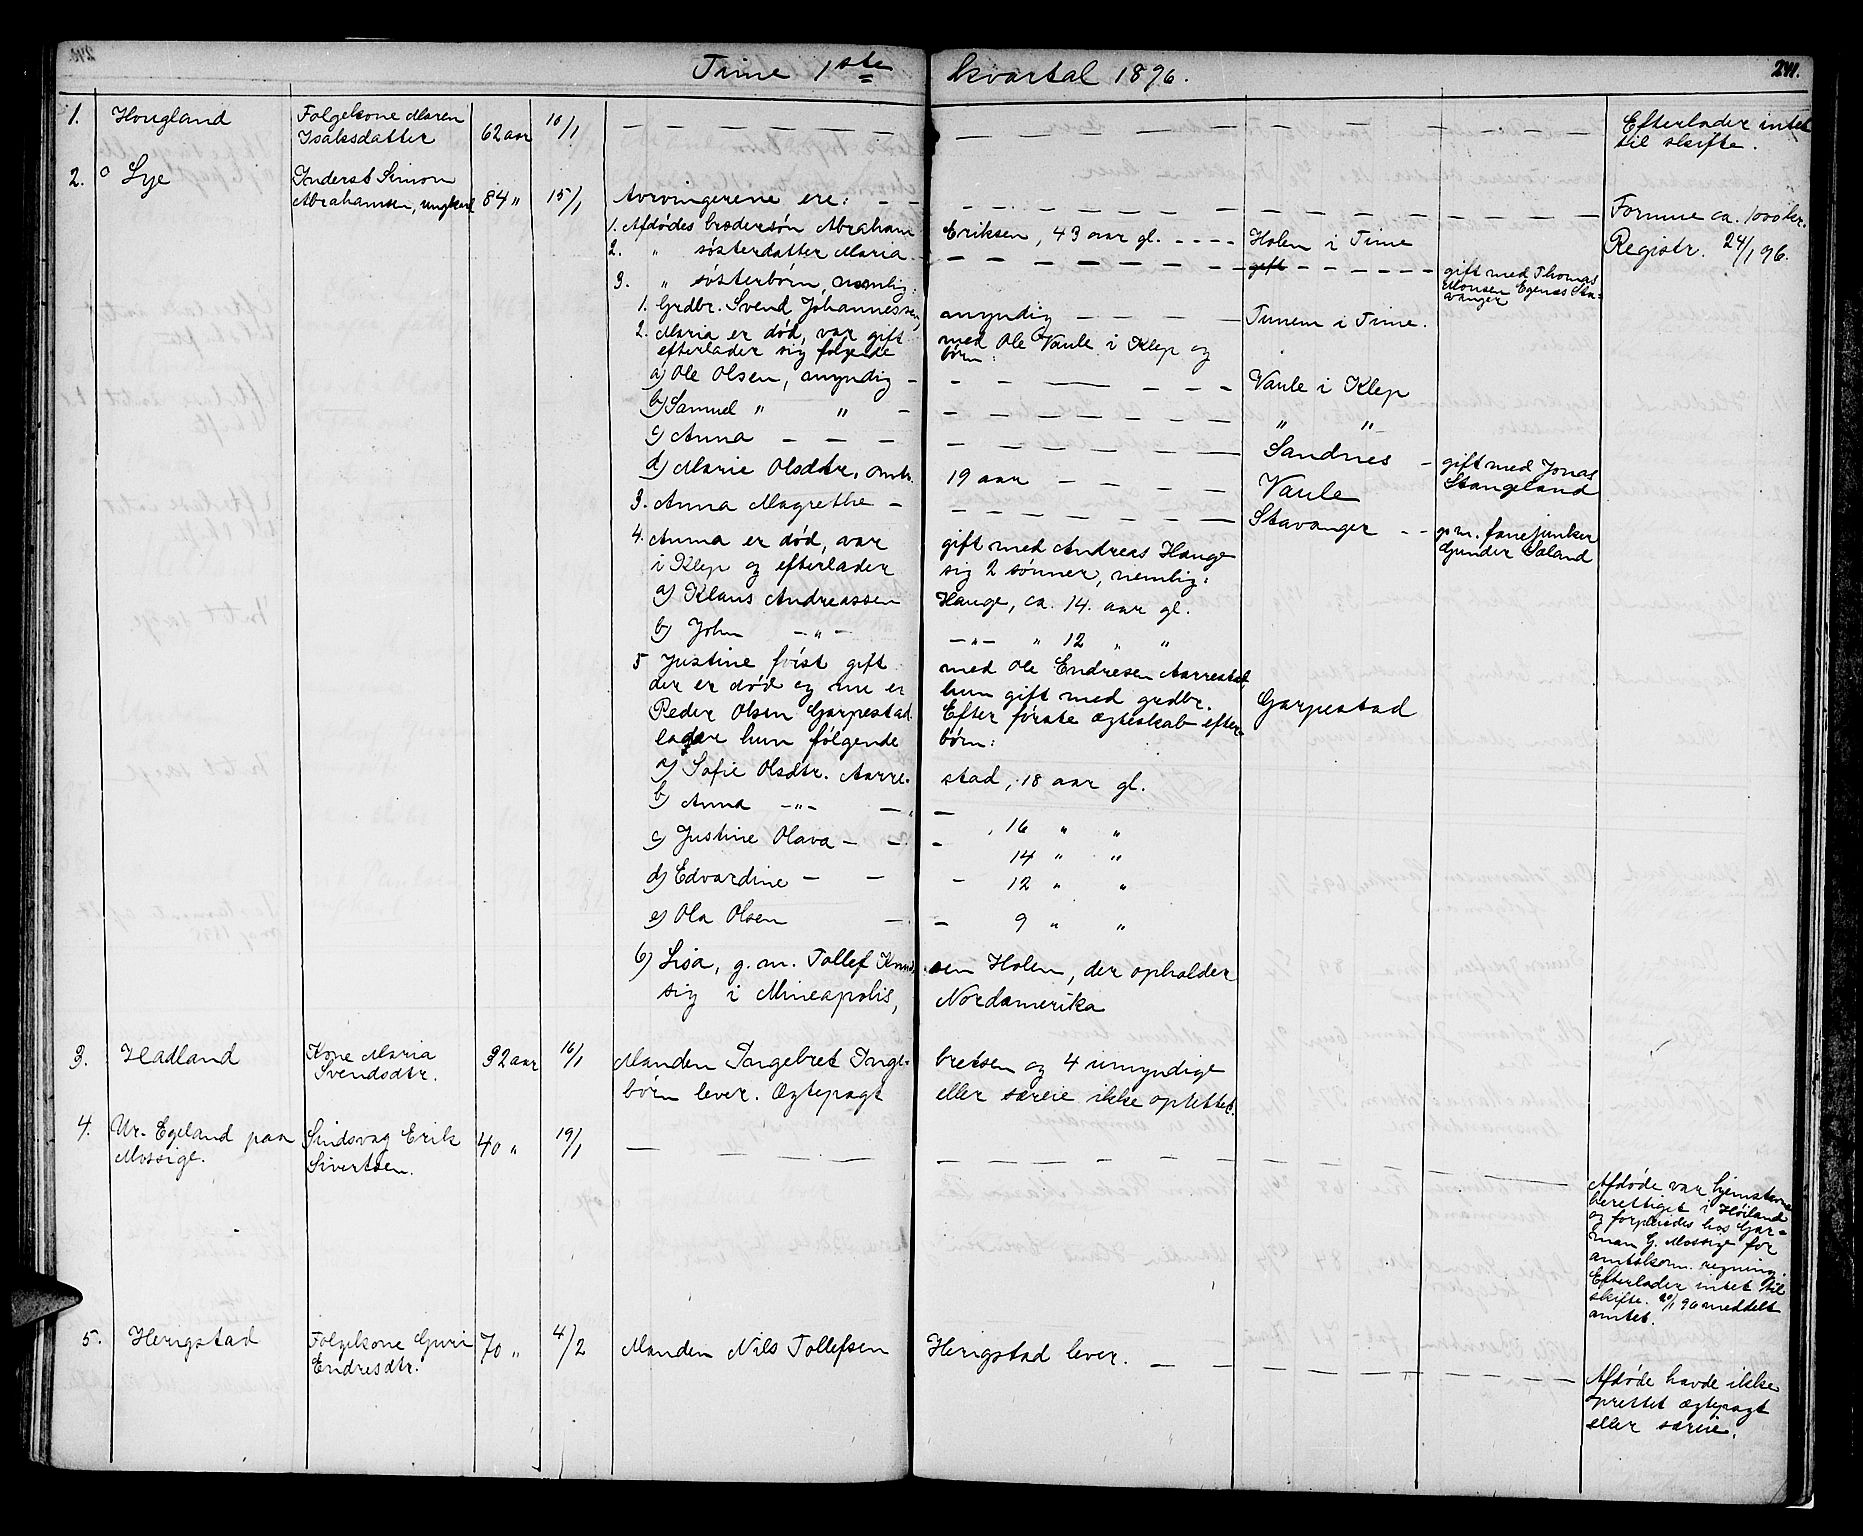 Time 1ste kvartal 1896.
241.
1. Hougland Folgekone Maren 10/1 Efterlader intet
Isaksdatter 62 aar — — — — — — — til skifte.
2. o Lye Inderst Simon
Abrahamsen, ungkarl 84 " 15/1 Arvingerene ere: — — — — — — Formue ca. 1000 kr.
1. Afdødes brodersøn Abraham Eriksen, 43 aar gl. - - - - Holen i Time Registr. 24/1 96.
2. " søsterdatter Maria — — — — — gift — — — gift med Thomas
Monsen Egenæs Sta-
vanger
3. " søsterbørn, nemlig:
1. Grdbr. Svend Johannessen, myndig — — — Tunem i Time.
2. Maria er død, var gift med Ole Vaule i Klep og
efterlader sig følgende børn:
a) Ole Olsen, myndig — — — — — — Vaule i Klep
b) Samuel " " — — — — — " "
c) Anna — — — — — — — Sandnes - gift med Jonas
Stangeland
d) Marie Olsdtr, omtr. 19 aar — — — — Vaule
3. Anna Magrethe — — — — — Stavanger - - g. m. fanejunker
Gunder Saland
4. Anna er død, var gift med Andreas Hauge
i Klep og efterlader sig 2 sønner, nemlig:
a) Klaus Andreassen Hauge, ca. 14. aar gl.
b) John — " — — " — " 12 " "
5 Justine først gift med Ole Endresen Aarrestad,
der er død og nu er hun gift med grdbr.
Peder Olsen Garpestad. Efter første ægteskab efter- Garpestad
lader hun følgende børn:
a) Sofie Olsdtr. Aarre- stad, 18 aar gl.
b) Anna — " — — — , 16 " "
c) Justine Olava — — — 14 " "
d) Edvardine — — — 12 " "
e) Ola Olsen — — 9 " "
6) Lisa, g. m. Tollef Knud- sen Holen, der opholder
sig i Mineapolis, Nordamerika
3. Hadland Kone Maria 32 aar 16/1 Manden Ingebret Inge- bretsen og 4 umyndige
Svendsdtr. børn lever. Ægtepagt eller særeie ikke oprettet.
4. Ur. Egeland paa Sindsvag Erik 40 " 19/1 — — — — — — — —
Mossige. Sivertsen.
Afdøde var hjemstavns
berettiget i Høiland
og forpleiedes hos Gar-
man G. Mossige for
amtskom. regning.
Efterlader intet til
skifte. 20/1 96 meddelt
amtet.
5. Herigstad Folgekone Guri 70 " 4/2 Manden Nils Tollefsen Herigstad lever. — — — —
Endresdtr.
Afdøde havde ikke
oprettet ægtepagt
eller særeie.